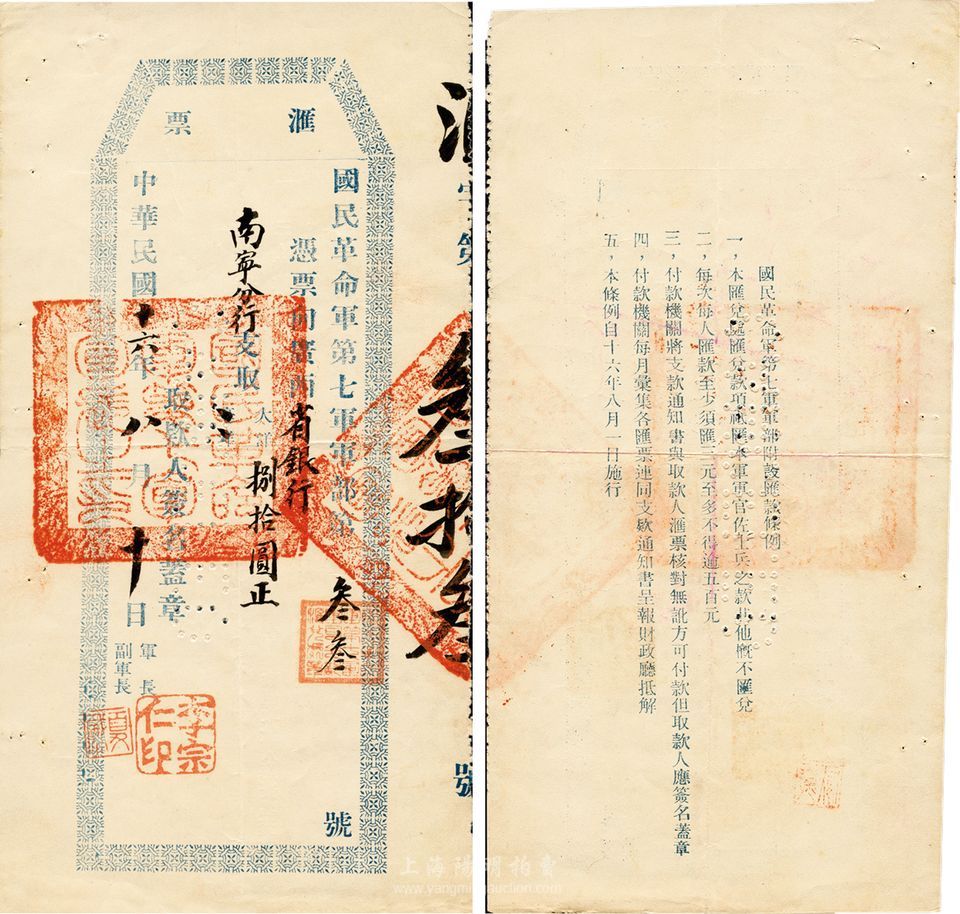 滙票
國民革命軍第七軍軍部第叁叁號
憑票向廣西省銀行
大洋捌拾圓正
南寧分行支取
取欵人簽名蓋章
中華民國十六年八月十日
軍長
副軍長
李宗仁印
叁拾叁
號
國民革命軍第七軍軍部附設匯款條例
一，本匯兌處匯兌款項祇匯本軍軍官佐士兵之款其他概不匯兌
二，每次每人匯款至少須匯三元至多不得逾五百元
三，付款機關將支款通知書與取款人滙票核對無訛方可付款但取款人應簽名蓋章
四，付款機關每月彙集各匯票連同支欵通知書呈報財政廳抵解
五，本條例自十六年八月一日施行
上海陽明拍賣
www.yangmingauction.com